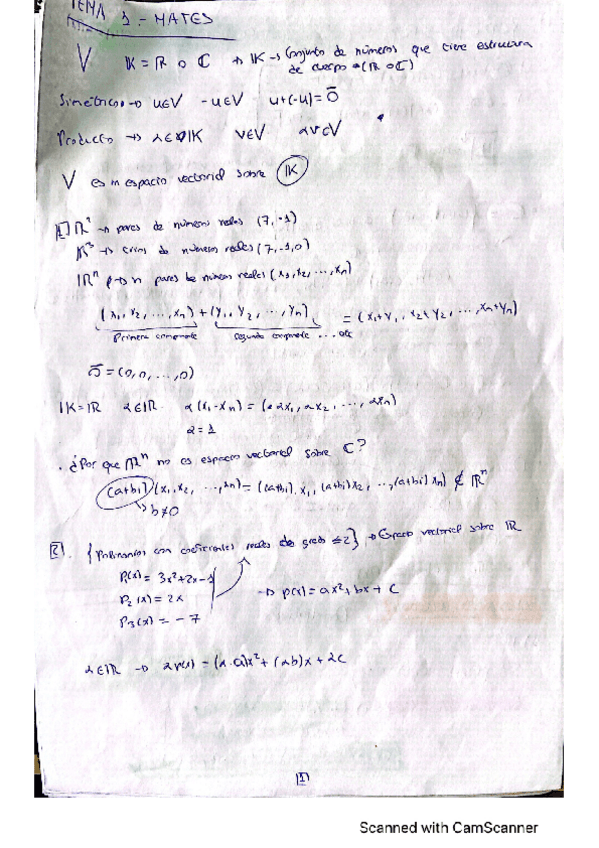 TEMA 1 - MATES
V K = R o C → K → Conjunto de números que tiene estructura
de cuerpo (R o C)
Simétrico → u∈V -u∈V u+(-u)=0̄
Producto → α∈K v∈V αv∈V
V es un espacio vectorial sobre K
1 R² → pares de números reales (7,-1)
R³ → trios de números reales (7,-1,0)
Rⁿ → n pares de números reales (x₁,x₂,...,xₙ)
(x₁,x₂,...,xₙ)+(y₁,y₂,...,yₙ) = (x₁+y₁,x₂+y₂,...,xₙ+yₙ)
Primera componente segunda componente ...etc
0̄=(0,0,...,0)
K=R α∈R α(x₁-xₙ)=(αx₁,αx₂,...,αxₙ)
α=1
· ¿Por que Rⁿ no es espacio vectorial sobre C?
(a+bi)(x₁,x₂,...,xₙ)=((a+bi).x₁,(a+bi)x₂,...,(a+bi)xₙ) ∉ Rⁿ
↳ b≠0
2. {Polinomios con coeficientes reales de grado ≤2} → Espacio vectorial sobre R
P₁(x)= 3x²+2x-1
P₂(x)= 2x → p(x)=ax²+bx+c
P₃(x)= -7
α∈R → αp(x)=(α.a)x²+(αb)x+αc
1
Scanned with CamScanner